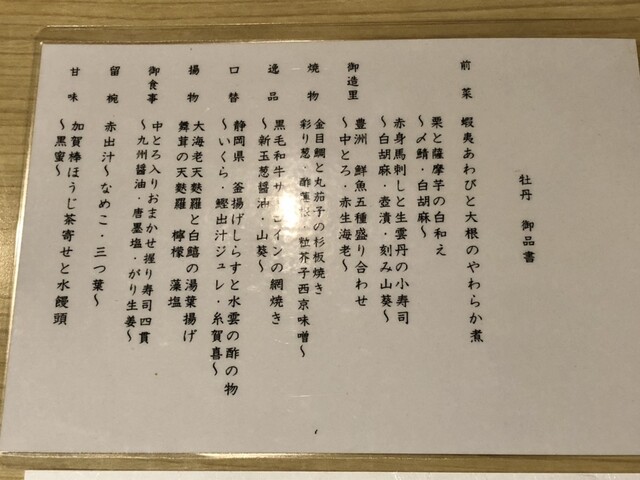 牡丹 御品書
前菜 蝦夷あわびと大根のやわらか煮
栗と薩摩芋の白和え
〜〆鯖・白胡麻〜
赤身馬刺しと生雲丹の小寿司
〜白胡麻・壺漬・刻み山葵〜
御造里 豊洲 鮮魚五種盛り合わせ
〜中とろ・赤生海老〜
焼物 金目鯛と丸茄子の杉板焼き
彩り葱・酢蓮根・粒芥子西京味噌〜
逸品 黒毛和牛サーロインの網焼き
〜新玉葱醤油・山葵〜
口替 静岡県 釜揚げしらすと水雲の酢の物
〜いくら・鰹出汁ジュレ・糸賀喜〜
揚物 大海老天麩羅と白鱚の湯葉揚げ
舞茸の天麩羅 檸檬 藻塩
御食事 中とろ入りおまかせ握り寿司四貫
〜九州醤油・唐墨塩・がり生姜〜
留椀 赤出汁〜なめこ・三つ葉〜
甘味 加賀棒ほうじ茶寄せと水饅頭
〜黒蜜〜